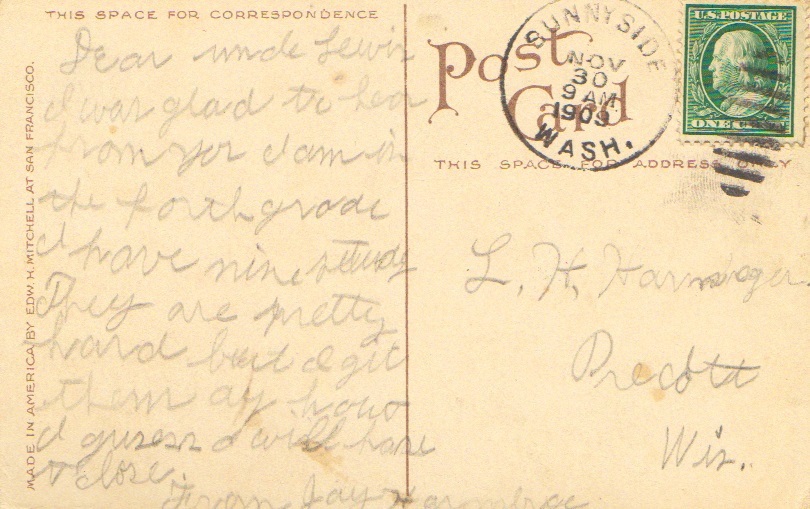 THIS SPACE FOR CORRESPONDENCE
Dear uncle Lewis
I was glad to hear
from yor I am in
the forth grade
I have nine study
They are pretty
hard but I git
them ay how
I guess I will have
to close.
From Jay
MADE IN AMERICA BY EDW. H. MITCHELL AT SAN FRANCISCO.
Post Card
SUNNYSIDE
NOV
30
9 AM
1909
WASH.
U.S. POSTAGE
ONE CENT
THIS SPACE FOR ADDRESS ONLY
L. H.
Precott
Wis.